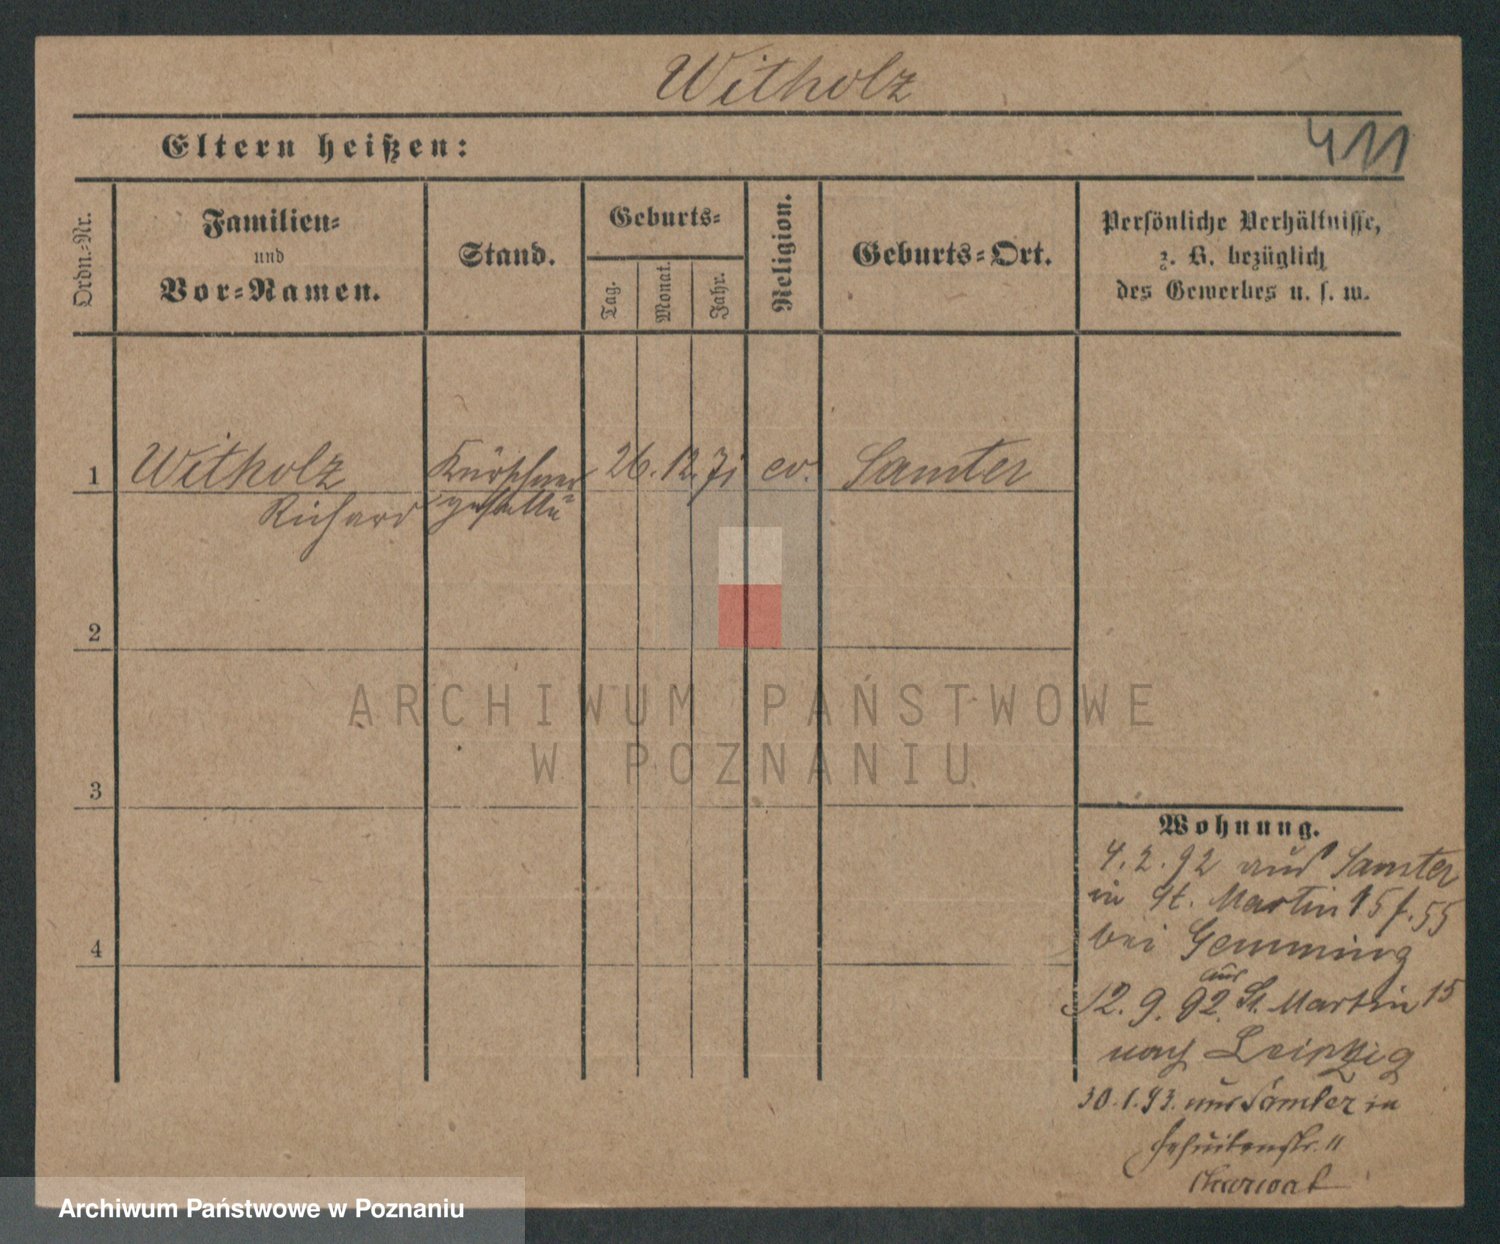 Witholz
Eltern heißen:
411
Ordn.-Nr.
Familien-
und
Vor-Namen.
Stand.
Geburts-
Tag.
Monat.
Jahr.
Religion.
Geburts-Ort.
Persönliche Verhältnisse,
z. B. bezüglich
des Gewerbes u. s. w.
1 Witholz Kürschner 26. 12. 71 ev. Samter
Richard
2
3
4
Wohnung.
4. 2. 92 aus Samter
in St. Martin 15
bei Gemming
aus
12. 9. 92. St. Martin 15
nach Leipzig
30. 1. 93. aus Samter in
Jesuitenstr. 11
ARCHIWUM PAŃSTWOWE
W POZNANIU
Archiwum Państwowe w Poznaniu